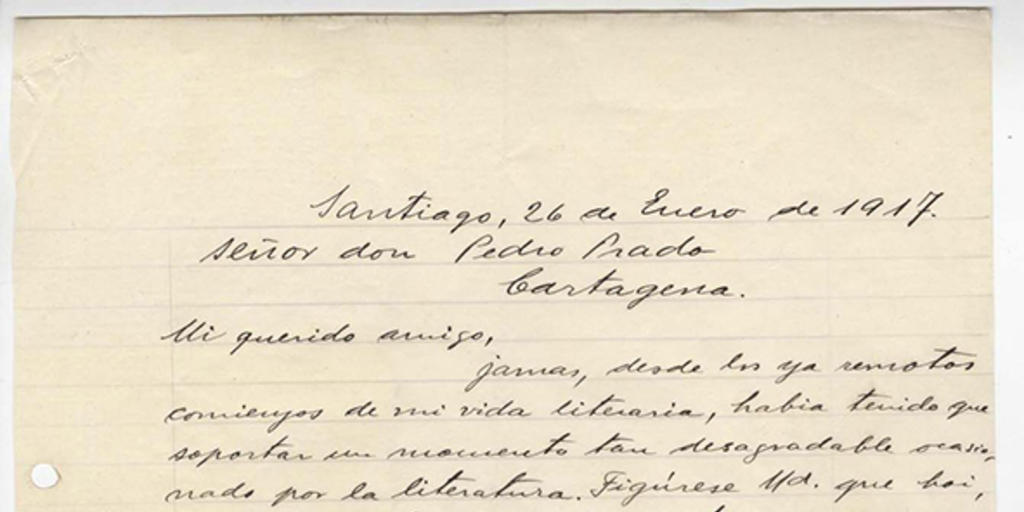 Santiago, 26 de Enero de 1917.
Señor don Pedro Prado
Cartagena.
Mi querido amigo,
jamas, desde los ya remotos
comienzos de mi vida literaria, habia tenido que
soportar un momento tan desagradable ocasio-
nado por la literatura. Figúrese Ud. que hoi,